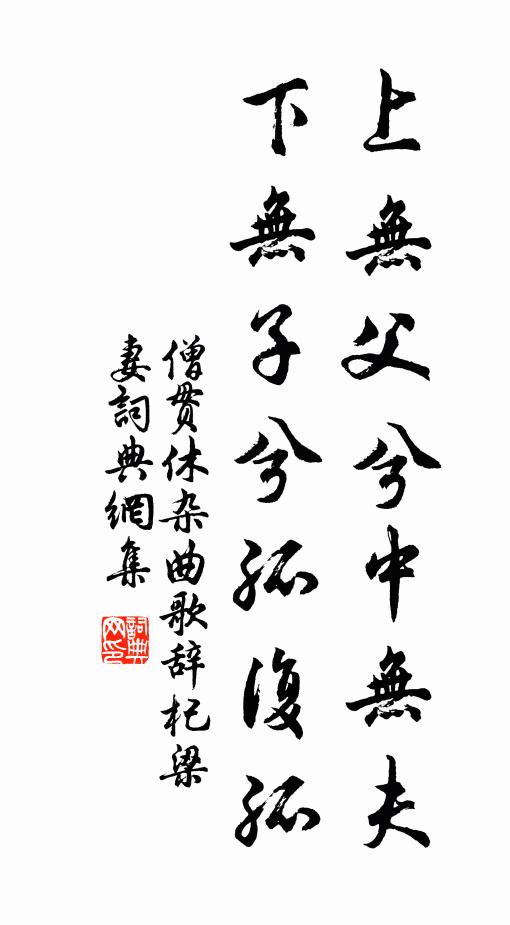 上無父兮中無夫
下無子兮孤復孤
僧貫休杂曲歌辞杞梁
妻詞典網集
詞典网印